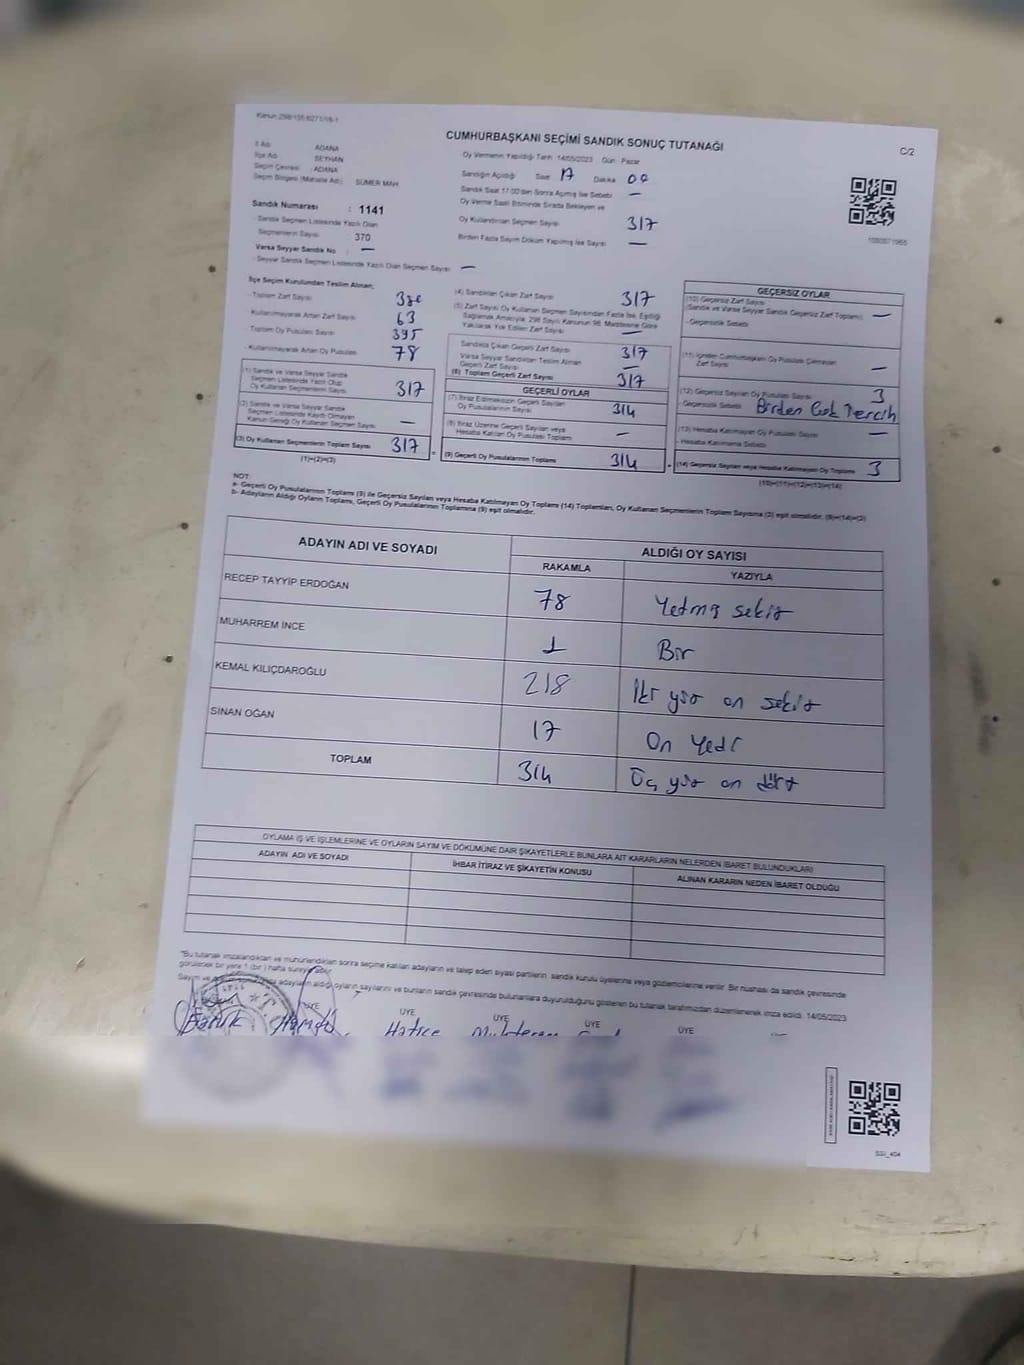 Kanun 298/155 6271/16-1
CUMHURBAŞKANI SEÇİMİ SANDIK SONUÇ TUTANAĞI
C/2
İl Adı : ADANA
İlçe Adı : SEYHAN
Seçim Çevresi : ADANA
Seçim Bölgesi (Mahalle Adı) : SÜMER MAH
Sandık Numarası : 1141
- Sandık Seçmen Listesinde Yazılı Olan
Seçmenlerin Sayısı 370
Varsa Seyyar Sandık No : —
- Seyyar Sandık Seçmen Listesinde Yazılı Olan Seçmen Sayısı —
Oy Vermenin Yapıldığı Tarih : 14/05/2023 Gün : Pazar
Sandığın Açıldığı Saat 17 Dakika 00
Sandık Saat 17:00'den Sonra Açılmış İse Sebebi —
Oy Verme Saati Bitiminde Sırada Bekleyen ve
Oy Kullandırılan Seçmen Sayısı 317
Birden Fazla Sayım Döküm Yapılmış İse Sayısı —
İlçe Seçim Kurulundan Teslim Alınan;
- Toplam Zarf Sayısı 380
- Kullanılmayarak Artan Zarf Sayısı 63
- Toplam Oy Pusulası Sayısı 395
- Kullanılmayarak Artan Oy Pusulası 78
(1) Sandık ve Varsa Seyyar Sandık
Seçmen Listesinde Yazılı Olup
Oy Kullanan Seçmenlerin Sayısı 317
(2) Sandık ve Varsa Seyyar Sandık
Seçmen Listesinde Kayıtlı Olmayan
Kanun Gereği Oy Kullanan Seçmen Sayısı —
(3) Oy Kullanan Seçmenlerin Toplam Sayısı 317
(1)+(2)=(3)
(4) Sandıktan Çıkan Zarf Sayısı 317
(5) Zarf Sayısı Oy Kullanan Seçmen Sayısından Fazla İse, Eşitliği
Sağlamak Amacıyla; 298 Sayılı Kanunun 98. Maddesine Göre
Yakılarak Yok Edilen Zarf Sayısı —
Sandıkta Çıkan Geçerli Zarf Sayısı 317
Varsa Seyyar Sandıktan Teslim Alınan
Geçerli Zarf Sayısı —
(6) Toplam Geçerli Zarf Sayısı 317
GEÇERLİ OYLAR
(7) İtiraz Edilmeksizin Geçerli Sayılan
Oy Pusulalarının Sayısı 314
(8) İtiraz Üzerine Geçerli Sayılan veya
Hesaba Katılan Oy Pusulası Toplamı —
(9) Geçerli Oy Pusulalarının Toplamı 314
GEÇERSİZ OYLAR
(10) Geçersiz Zarf Sayısı
(Sandık ve Varsa Seyyar Sandık Geçersiz Zarf Toplamı) —
- Geçersizlik Sebebi
(11) İçinden Cumhurbaşkanı Oy Pusulası Çıkmayan
Zarf Sayısı —
(12) Geçersiz Sayılan Oy Pusulası Sayısı 3
- Geçersizlik Sebebi Birden Çok Tercih
(13) Hesaba Katılmayan Oy Pusulası Sayısı —
- Hesaba Katılmama Sebebi
(14) Geçersiz Sayılan veya Hesaba Katılmayan Oy Toplamı 3
(10)+(11)+(12)+(13)=(14)
NOT:
a- Geçerli Oy Pusulalarının Toplamı (9) ile Geçersiz Sayılan veya Hesaba Katılmayan Oy Toplamı (14) Toplamları, Oy Kullanan Seçmenlerin Toplam Sayısına (3) eşit olmalıdır. (9)+(14)=(3)
b- Adayların Aldığı Oyların Toplamı, Geçerli Oy Pusulalarının Toplamına (9) eşit olmalıdır.
ADAYIN ADI VE SOYADI ALDIĞI OY SAYISI
RAKAMLA YAZIYLA
RECEP TAYYİP ERDOĞAN 78 Yetmiş sekiz
MUHARREM İNCE 1 Bir
KEMAL KILIÇDAROĞLU 218 İki yüz on sekiz
SİNAN OĞAN 17 On Yedi
TOPLAM 314 Üç yüz on dört
OYLAMA İŞ VE İŞLEMLERİNE VE OYLARIN SAYIM VE DÖKÜMÜNE DAİR ŞİKAYETLERLE BUNLARA AİT KARARLARIN NELERDEN İBARET BULUNDUKLARI
ADAYIN ADI VE SOYADI İHBAR İTİRAZ VE ŞİKAYETİN KONUSU ALINAN KARARIN NEDEN İBARET OLDUĞU
"Bu tutanak imzalandıktan ve mühürlendikten sonra seçime katılan adayların ve talep eden siyasi partilerin sandık kurulu üyelerine veya gözlemcilerine verilir. Bir nüshası da sandık çevresinde
görülecek bir yere 1 (bir) hafta süreyle asılır.
adayların aldığı oyların sayılarını ve bunların sandık çevresinde bulunanlara duyurulduğunu gösteren bu tutanak tarafımızdan düzenlenerek imza edildi. 14/05/2023
ÜYE ÜYE ÜYE ÜYE ÜYE
Hamdi Hatice Muhterem
SSI_404